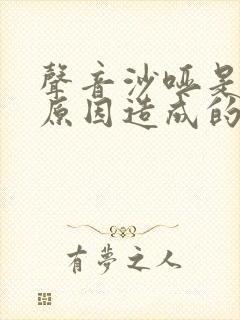 聲音沙啞是
原因造成的
有夢之人